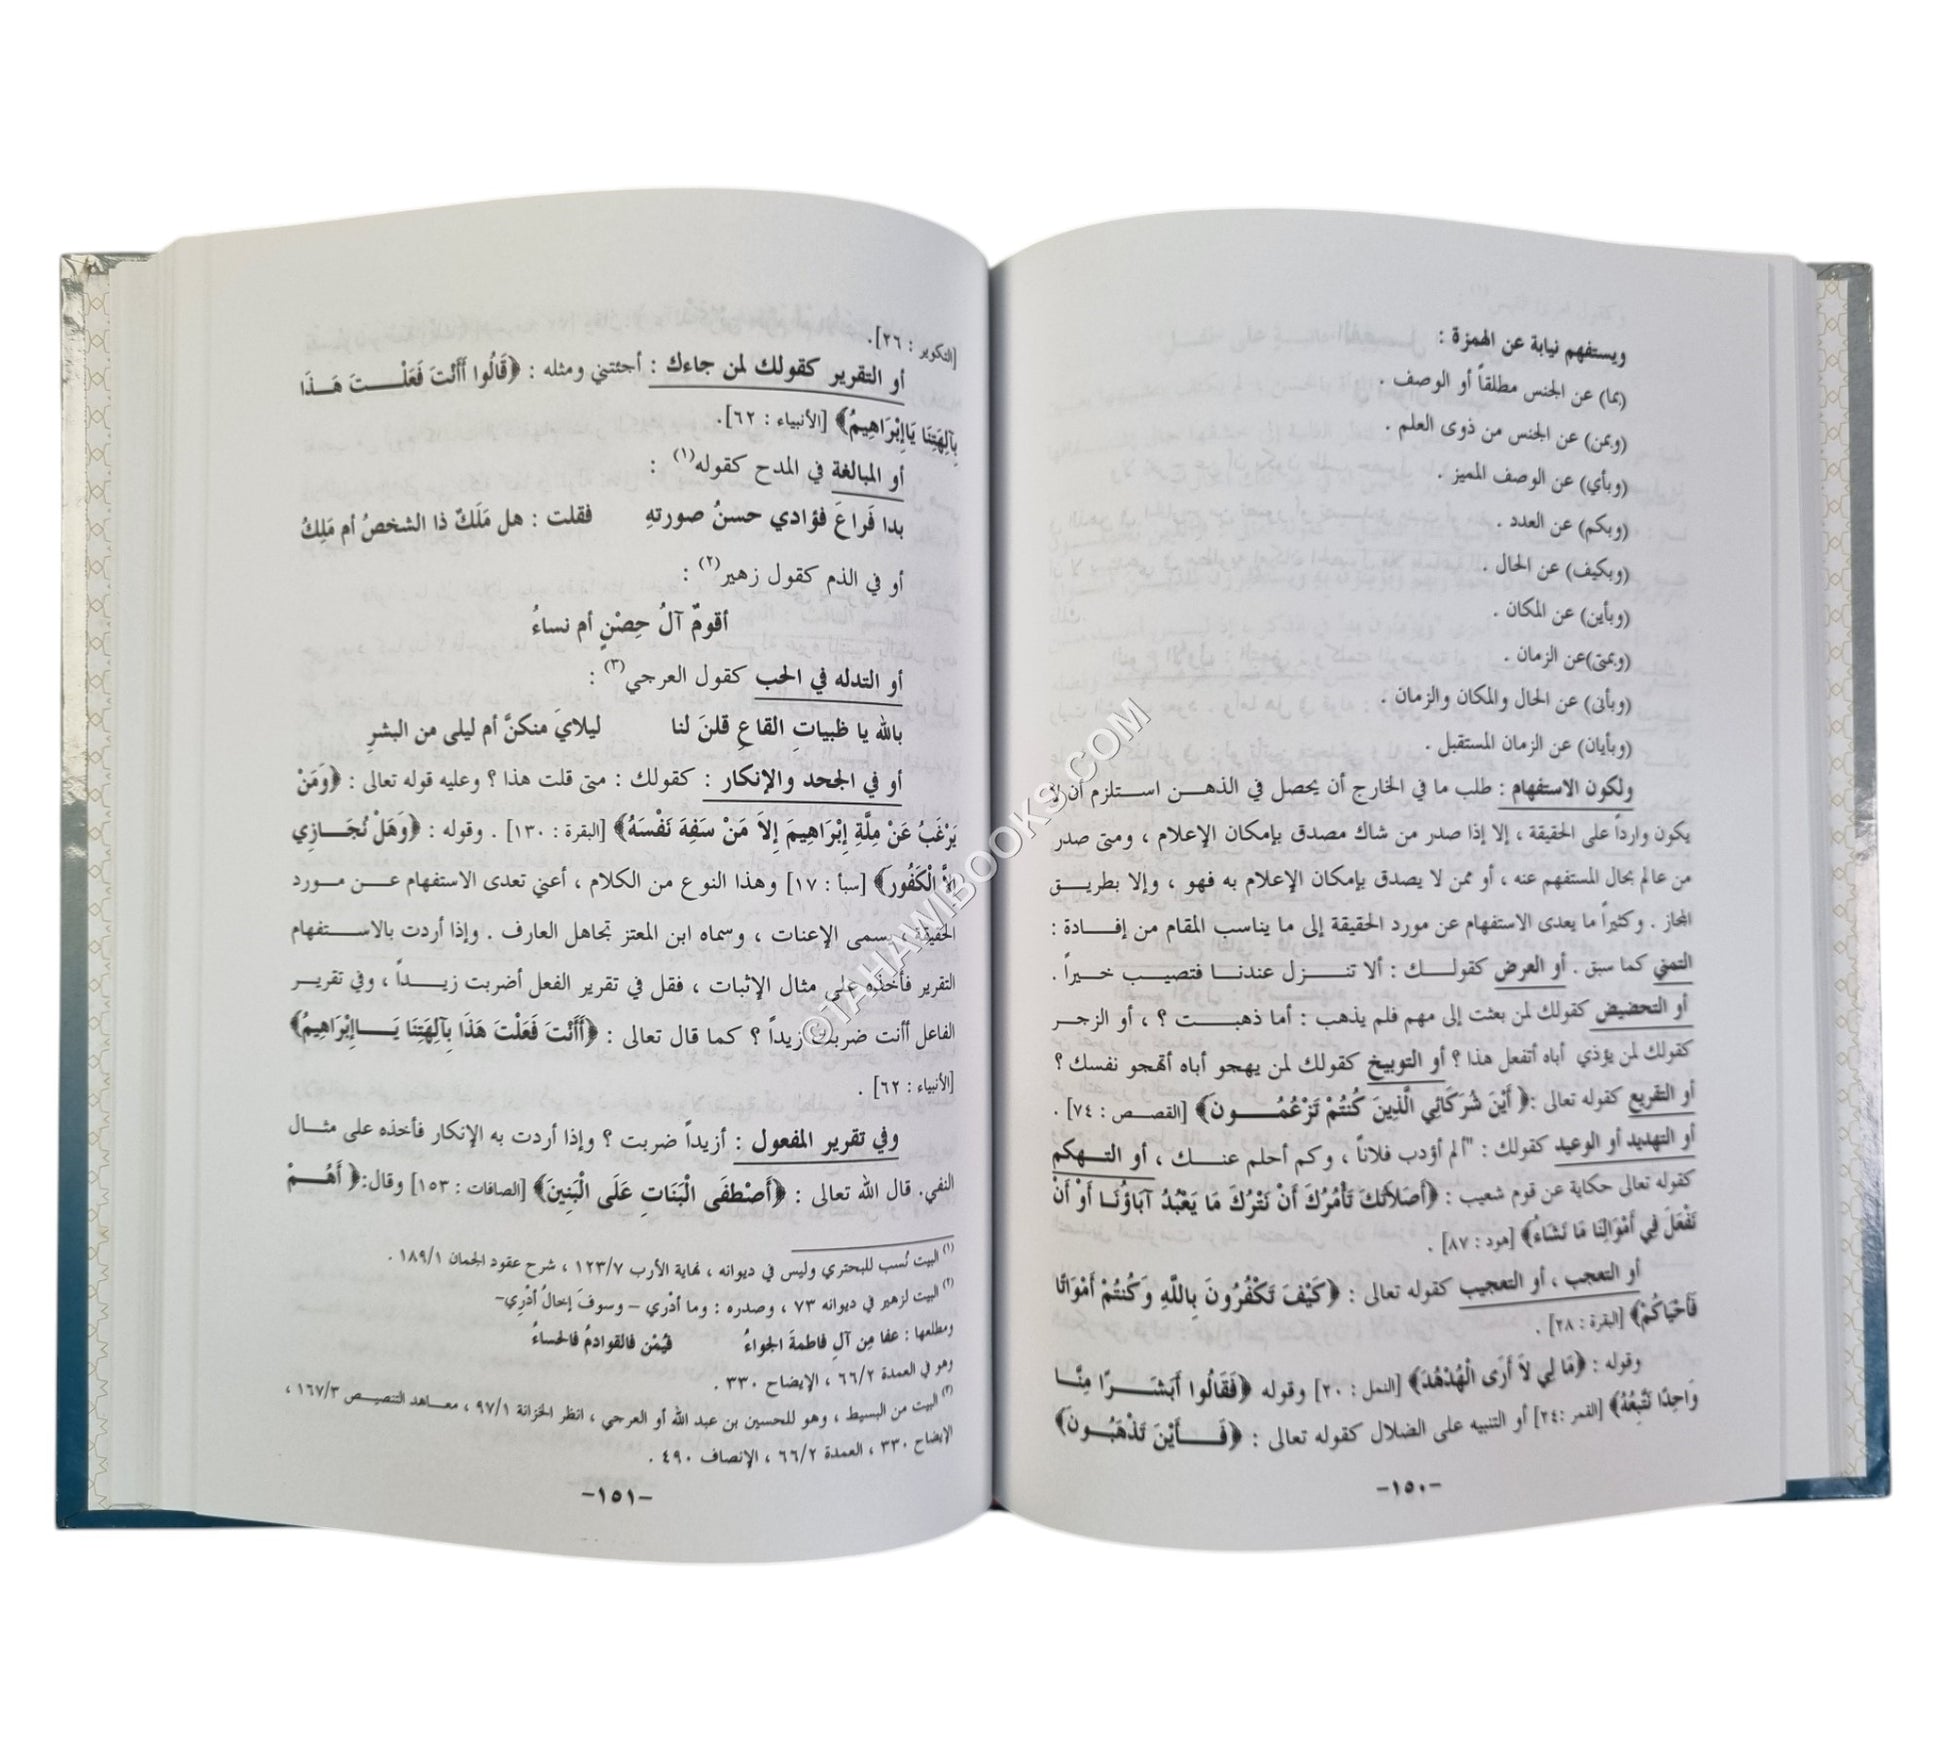 ويستفهم نيابة عن الهمزة :
(بما) عن الجنس مطلقاً أو الوصف .
(وبمن) عن الجنس من ذوى العلم .
(وبأي) عن الوصف المميز .
(وبكم) عن العدد .
(وبكيف) عن الحال .
(وبأين) عن المكان .
(وبمتى)عن الزمان .
(وبأنى) عن الحال والمكان والزمان .
(وبأيان) عن الزمان المستقبل .
ولكون الاستفهام : طلب ما في الخارج أن يحصل في الذهن استلزم أن لا
يكون وارداً على الحقيقة ، إلا إذا صدر من شاك مصدق بإمكان الإعلام ، ومتى صدر
من عالم بحال المستفهم عنه ، أو ممن لا يصدق بإمكان الإعلام به فهو ، وإلا بطريق
المجاز . وكثيراً ما يعدى الاستفهام عن مورد الحقيقة إلى ما يناسب المقام من إفادة :
التمني كما سبق . أو العرض كقولك : ألا تنزل عندنا فتصيب خيراً .
أو التحضيض كقولك لمن بعثت إلى مهم فلم يذهب : أما ذهبت ؟ ، أو الزجر
كقولك لمن يؤذي أباه أتفعل هذا ؟ أو التوبيخ كقولك لمن يهجو أباه أتهجو نفسك ؟
أو التقريع كقوله تعالى :﴿ أَيْنَ شُرَكَائِي الَّذِينَ كُنتُمْ تَزْعُمُونَ﴾ [القصص : ٧٤] .
أو التهديد أو الوعيد كقولك : "ألم أؤدب فلاناً ، وكم أحلم عنك ، أو التهكم
كقوله تعالى حكاية عن قوم شعيب : ﴿أَصَلاَتُكَ تَأْمُرُكَ أَنْ نَتْرُكَ مَا يَعْبُدُ آبَاؤُنَا أَوْ أَنْ
نَفْعَلَ فِي أَمْوَالِنَا مَا نَشَاءُ﴾ [هود : ٨٧] .
أو التعجب ، أو التعجيب كقوله تعالى : ﴿كَيْفَ تَكْفُرُونَ بِاللَّهِ وَكُنتُمْ أَمْوَاتًا
فَأَحْيَاكُمْ﴾ [البقرة : ٢٨] .
وقوله : ﴿مَا لِي لاَ أَرَى الْهُدْهُدَ﴾ [النمل : ٢٠] وقوله ﴿فَقَالُوا أَبَشَرًا مِنَّا
وَاحِدًا نَتَّبِعُهُ﴾ [القمر :٢٤] أو التنبيه على الضلال كقوله تعالى : ﴿فَأَيْنَ تَذْهَبُونَ﴾
-١٥٠-
[التكوير : ٢٦].
أو التقرير كقولك لمن جاءك : أجئتني ومثله : ﴿قَالُوا أَأَنْتَ فَعَلْتَ هَذَا
بِآلِهَتِنَا يَاإِبْرَاهِيمُ﴾ [الأنبياء : ٦٢].
أو المبالغة في المدح كقوله(١) :
بدا فَراعَ فؤادي حسنُ صورتهِ فقلت : هل مَلَكٌ ذا الشخصُ أم مَلِكُ
أو في الذم كقول زهير(٢) :
أقومٌ آلُ حِصْنٍ أم نساءُ
أو التدله في الحب كقول العرجي(٣) :
بالله يا ظبياتِ القاعِ قلنَ لنا ليلايَ منكنَّ أم ليلى من البشرِ
أو في الجحد والإنكار : كقولك : متى قلت هذا ؟ وعليه قوله تعالى : ﴿وَمَنْ
يَرْغَبُ عَنْ مِلَّةِ إِبْرَاهِيمَ إِلاَّ مَنْ سَفِهَ نَفْسَهُ﴾ [البقرة : ١٣٠] . وقوله : ﴿وَهَلْ نُجَازِي
إِلاَّ الْكَفُورَ﴾ [سبأ : ١٧] وهذا النوع من الكلام ، أعني تعدى الاستفهام عن مورد
الحقيقة ، يسمى الإعنات ، وسماه ابن المعتز تجاهل العارف . وإذا أردت بالاستفهام
التقرير فأخذه على مثال الإثبات ، فقل في تقرير الفعل أضربت زيداً ، وفي تقرير
الفاعل أأنت ضربت زيداً ؟ كما قال تعالى : ﴿أَأَنْتَ فَعَلْتَ هَذَا بِآلِهَتِنَا يَاإِبْرَاهِيمُ﴾
[الأنبياء : ٦٢] .
وفي تقرير المفعول : أزيداً ضربت ؟ وإذا أردت به الإنكار فأخذه على مثال
النفي. قال الله تعالى : ﴿أَصْطَفَى الْبَنَاتِ عَلَى الْبَنِينَ﴾ [الصافات : ١٥٣] وقال:﴿ أَهُمْ
(١) البيت نُسب للبحتري وليس في ديوانه ، نهاية الأرب ١٢٣/٧ ، شرح عقود الجمان ١٨٩/١ .
(٢) البيت لزهير في ديوانه ٧٣ ، وصدره : وما أدْري – وسوفَ إخالُ أدْرِي–
ومطلعها : عفا مِن آلِ فاطمةَ الجواءُ فيُمْن فالقوادمُ فالحساءُ
وهو في العمدة ٦٦/٢ ، الإيضاح ٣٣٠ .
(٣) البيت من البسيط ، وهو للحسين بن عبد الله أو العرجي ، انظر الخزانة ٩٧/١ ، معاهد التنصيص ١٦٧/٣ ،
الإيضاح ٣٣٠ ، العمدة ٦٦/٢ ، الإنصاف ٤٩٠ .
-١٥١-
©TAHAWIBOOKS.COM